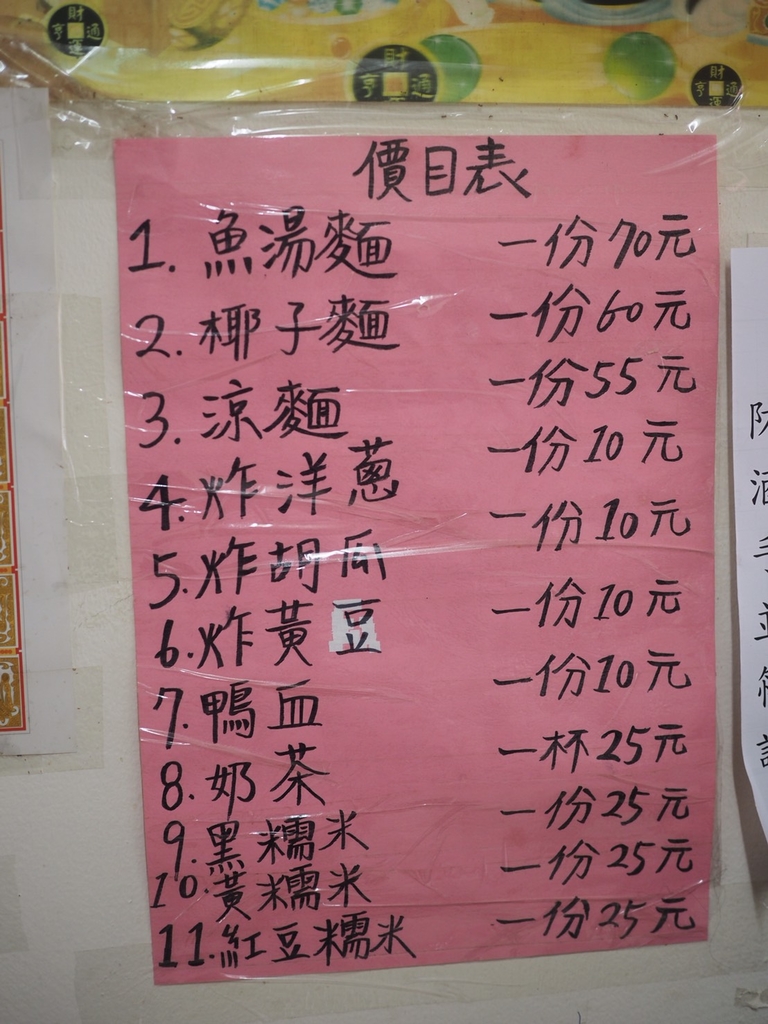 財
亨 通
運
財
亨 通
運
財
亨 通
運
價目表
1. 魚湯麵 一份70元
2. 椰子麵 一份60元
3. 涼麵 一份55元
4. 炸洋蔥 一份10元
5. 炸胡瓜 一份10元
6. 炸黃豆 一份10元
7. 鴨血 一份10元
8. 奶茶 一杯25元
9. 黑糯米 一份25元
10. 黃糯米 一份25元
11. 紅豆糯米 一份25元
手
並